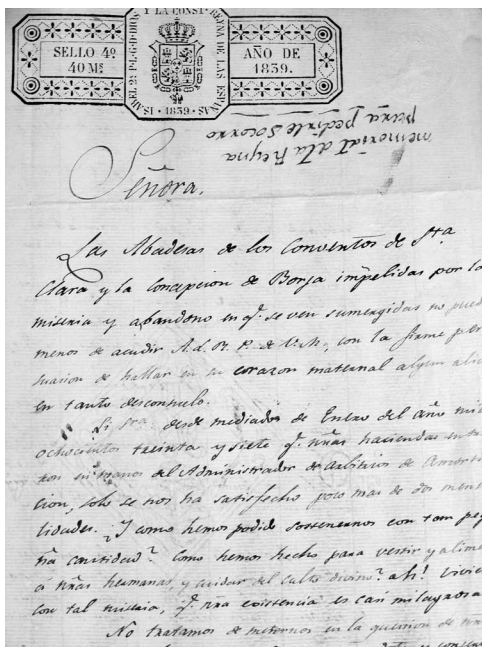 SELLO 4º
40 Ms
Y LA CONST. REYNA DE LAS ESPAÑAS
ISABEL 2ª P.L.G.D.DIOS
1839
AÑO DE
1839.
memorial a la Reyna
para pedirle socorro
Señora.
Las Abadesas de los Conventos de Sta
Clara y la Concepcion de Borja impelidas por la
miseria y abandono en q.e se ven sumergidas no pued
menos de acudir A.L.R.P. de V.M., con la firme per
suacion de hallar en su corazon maternal algun alic
en tanto desconsuelo.
Si Sra. desde mediados de Enero del año mil
ochocientos treinta y siete q.e nñas haciendas entra
ron en manos del Administrador de Arbitrios de Amorti
cion, solo se nos ha satisfecho poco mas de dos mens
lidades. ¿Y como hemos podido sostenernos con tam peq
ña cantidad? Como hemos hecho para vestir y alime
á nñas hermanas, y cuidar del culto divino? ah!
con tal miseria, q.e nña existencia es casi milagrosa
No tratamos de meternos en la question de